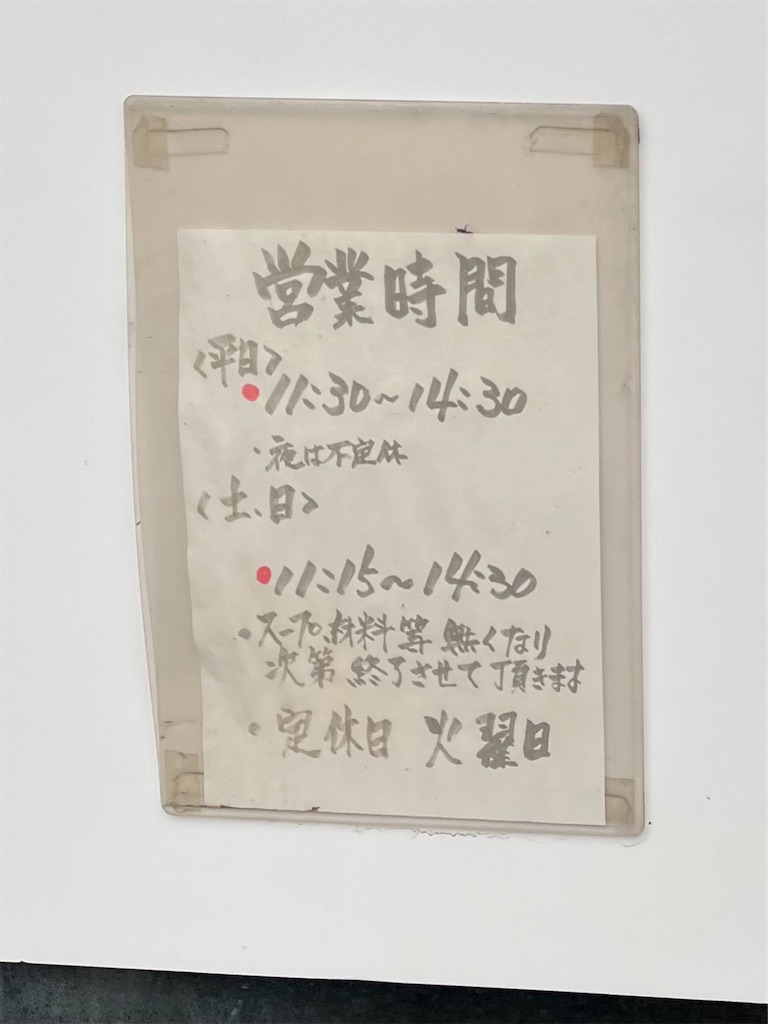 営業時間
〈平日〉
•11:30～14:30
・夜は不定休
〈土、日〉
•11:15～14:30
・スープ、材料等 無くなり
次第 終了させて頂きます
・定休日 火曜日